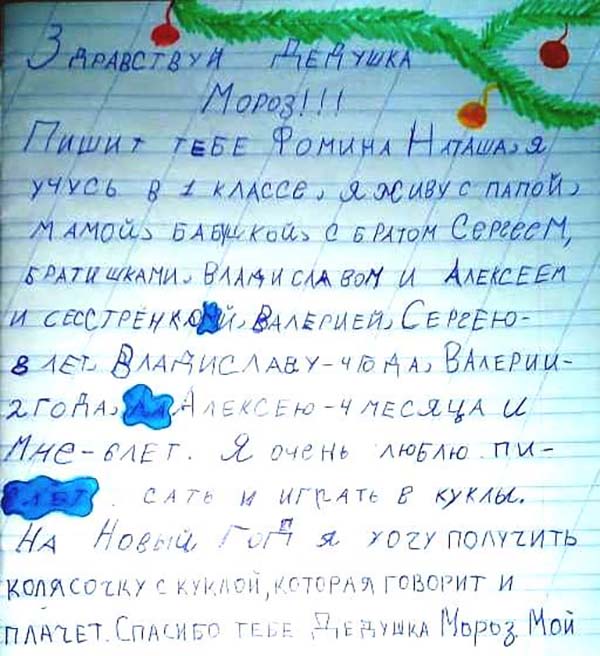 Здравствуй Дедушка
Мороз!!!
Пишит тебе Фомина Наташа, я
учусь в 1 классе, я живу с папой,
мамой, бабушкой, с братом Сергеем,
братишками, Владиславом и Алексеем
и сесстрёнкой, Валерией, Сергею-
8 лет, Владиславу-4 года, Валерии-
2 года, Алексею-4 месяца и
Мне-6 лет. Я очень люблю пи-
сать и играть в куклы.
На Новый Год я хочу получить
колясочку с куклой, которая говорит и
плачет. Спасибо тебе Дедушка Мороз. Мой